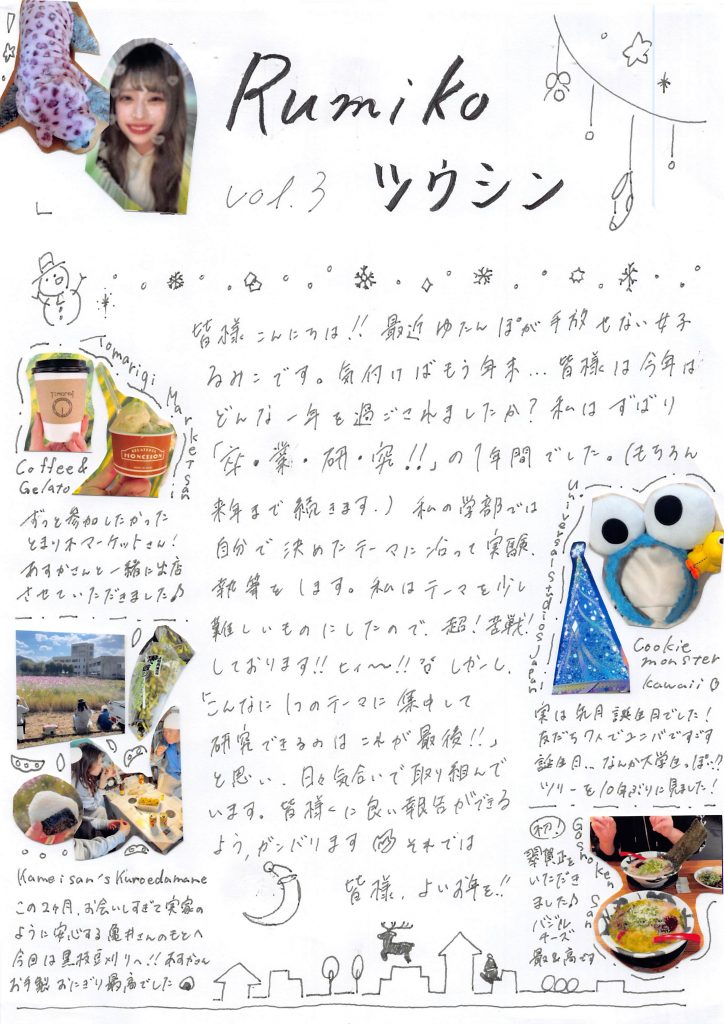 Rumiko
vol.3 ツウシン
皆様こんにちは!! 最近ゆたんぽが手放せない女子
るみこです。気付けばもう年末…皆様は今年は
どんな一年を過ごされましたか? 私はずばり
「卒・業・研・究!!」の1年間でした。(もちろん
来年まで続きます.) 私の学部では
自分で決めたテーマに沿って実験、
執筆をします。私はテーマを少し
難しいものにしたので、超!苦戦!
しております!! ヒィ〜!! しかし、
「こんなに1つのテーマに集中して
研究できるのはこれが最後!!」
と思い、日々気合いで取り組んで
います。皆様に良い報告ができる
よう、ガンバリます それでは
皆様、よいお年を!!
Tomarigi Market san
Tomarigi
GELATERIA
HONESTON
Coffee &
Gelato
ずっと参加したかった
とまり木マーケットさん!
あすかさんと一緒に出店
させていただきました♪
Kamei san's Kuroedamame
この2ヶ月、お会いしすぎて実家の
ように安心する亀井さんのもとへ
今回は黒枝豆刈りへ!! あすかさん
お手製おにぎり最高でした
Universal Studios Japan
Cookie
monster
kawaii
実は先月誕生月でした!
友だち7人でユニバですごす
誕生日… なんか大学生っぽい!?
ツリーを10年ぶりに見ました!
Goshoken san
初!
翠賀正を
いただき
ました♪
バジル
チーズ
最&高です